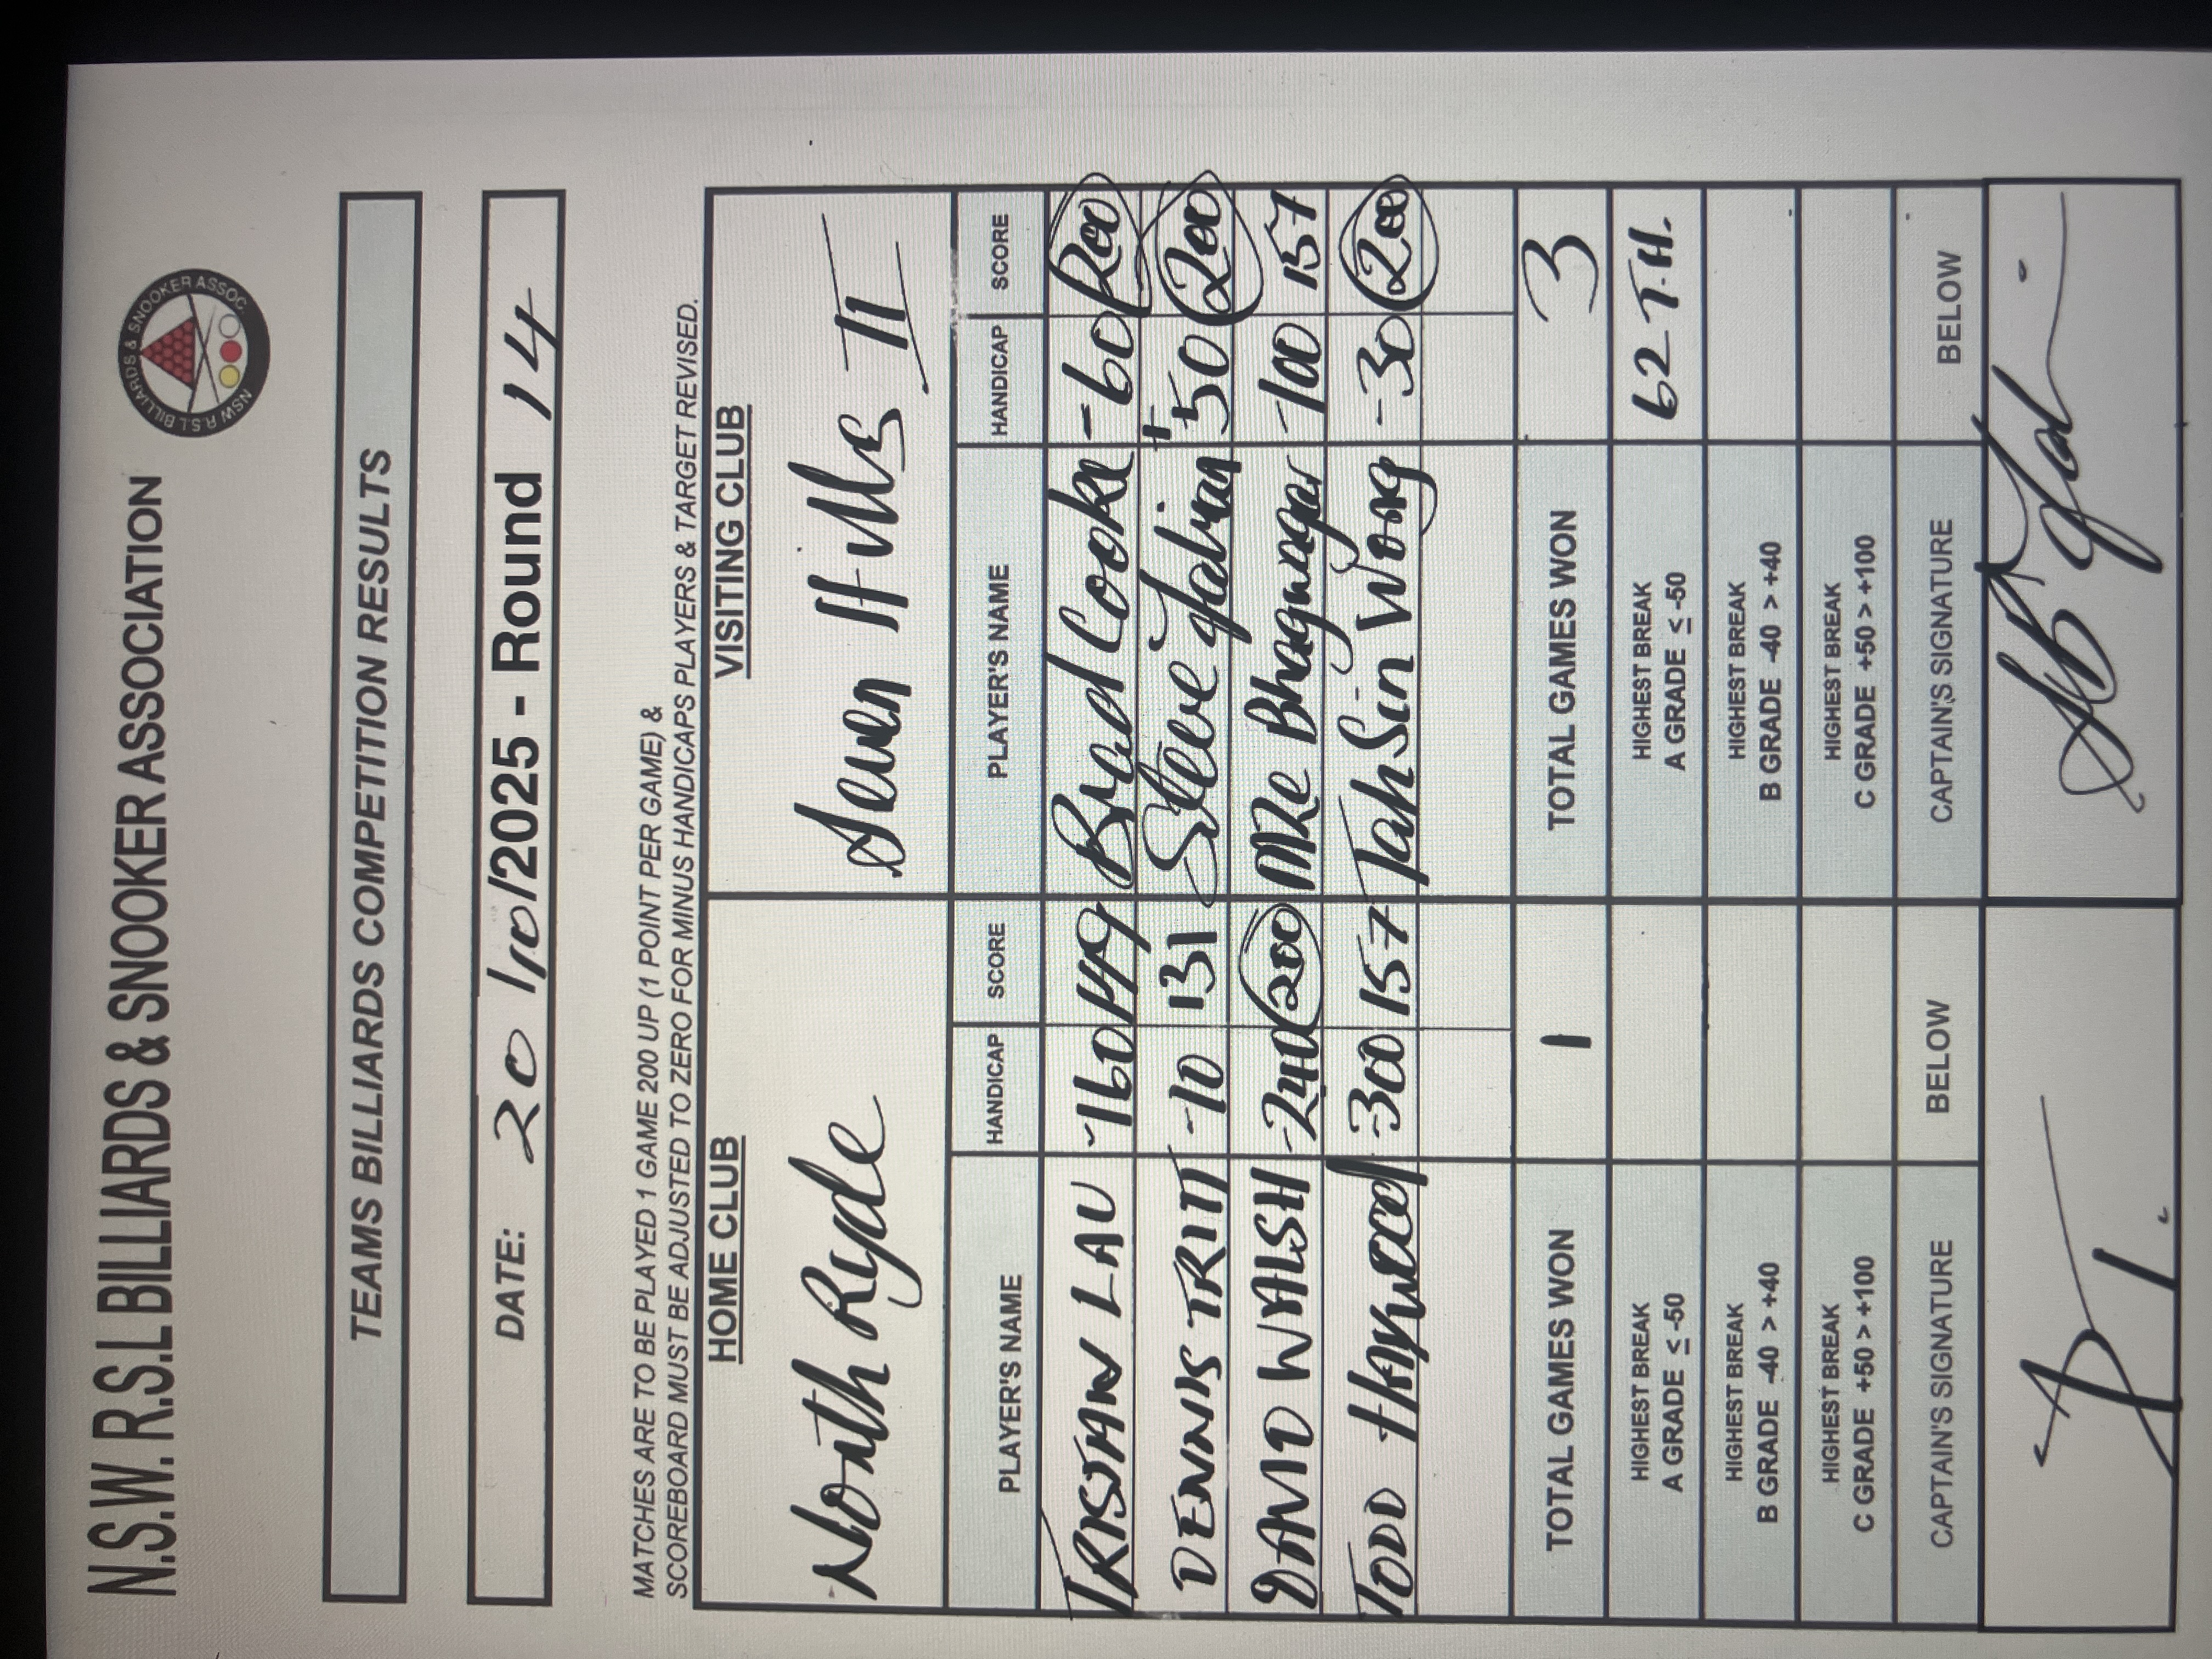 N.S.W. R.S.L BILLIARDS & SNOOKER ASSOCIATION
NSW R.S.L BILLIARDS & SNOOKER ASSOC.
TEAMS BILLIARDS COMPETITION RESULTS
DATE: 20/10/2025 - Round 14
MATCHES ARE TO BE PLAYED 1 GAME 200 UP (1 POINT PER GAME) &
SCOREBOARD MUST BE ADJUSTED TO ZERO FOR MINUS HANDICAPS PLAYERS & TARGET REVISED.
HOME CLUB VISITING CLUB
North Ryde Seven Hills II
PLAYER'S NAME HANDICAP SCORE PLAYER'S NAME HANDICAP SCORE
TRISTAN LAU -160 119 Brad Cooke -60 200
DENNIS TRITT -10 131 Steve +50 200
DAVID WALSH -240 200 Mike Bhagwagar -100 157
TODD Haywood -300 157 Tah Sin Wong -30 200
TOTAL GAMES WON 1 TOTAL GAMES WON 3
HIGHEST BREAK
A GRADE ≤ -50
HIGHEST BREAK
A GRADE ≤ -50
62 T.H.
HIGHEST BREAK
B GRADE -40 > +40
HIGHEST BREAK
B GRADE -40 > +40
HIGHEST BREAK
C GRADE +50 > +100
HIGHEST BREAK
C GRADE +50 > +100
CAPTAIN'S SIGNATURE BELOW CAPTAIN'S SIGNATURE BELOW